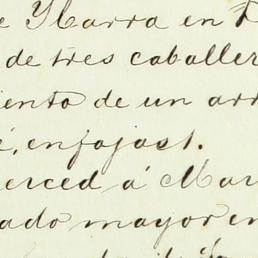 e Ybarra en
de tres caballer
iento de un arr
é, enfojast.
erced á Mar
ado mayor en